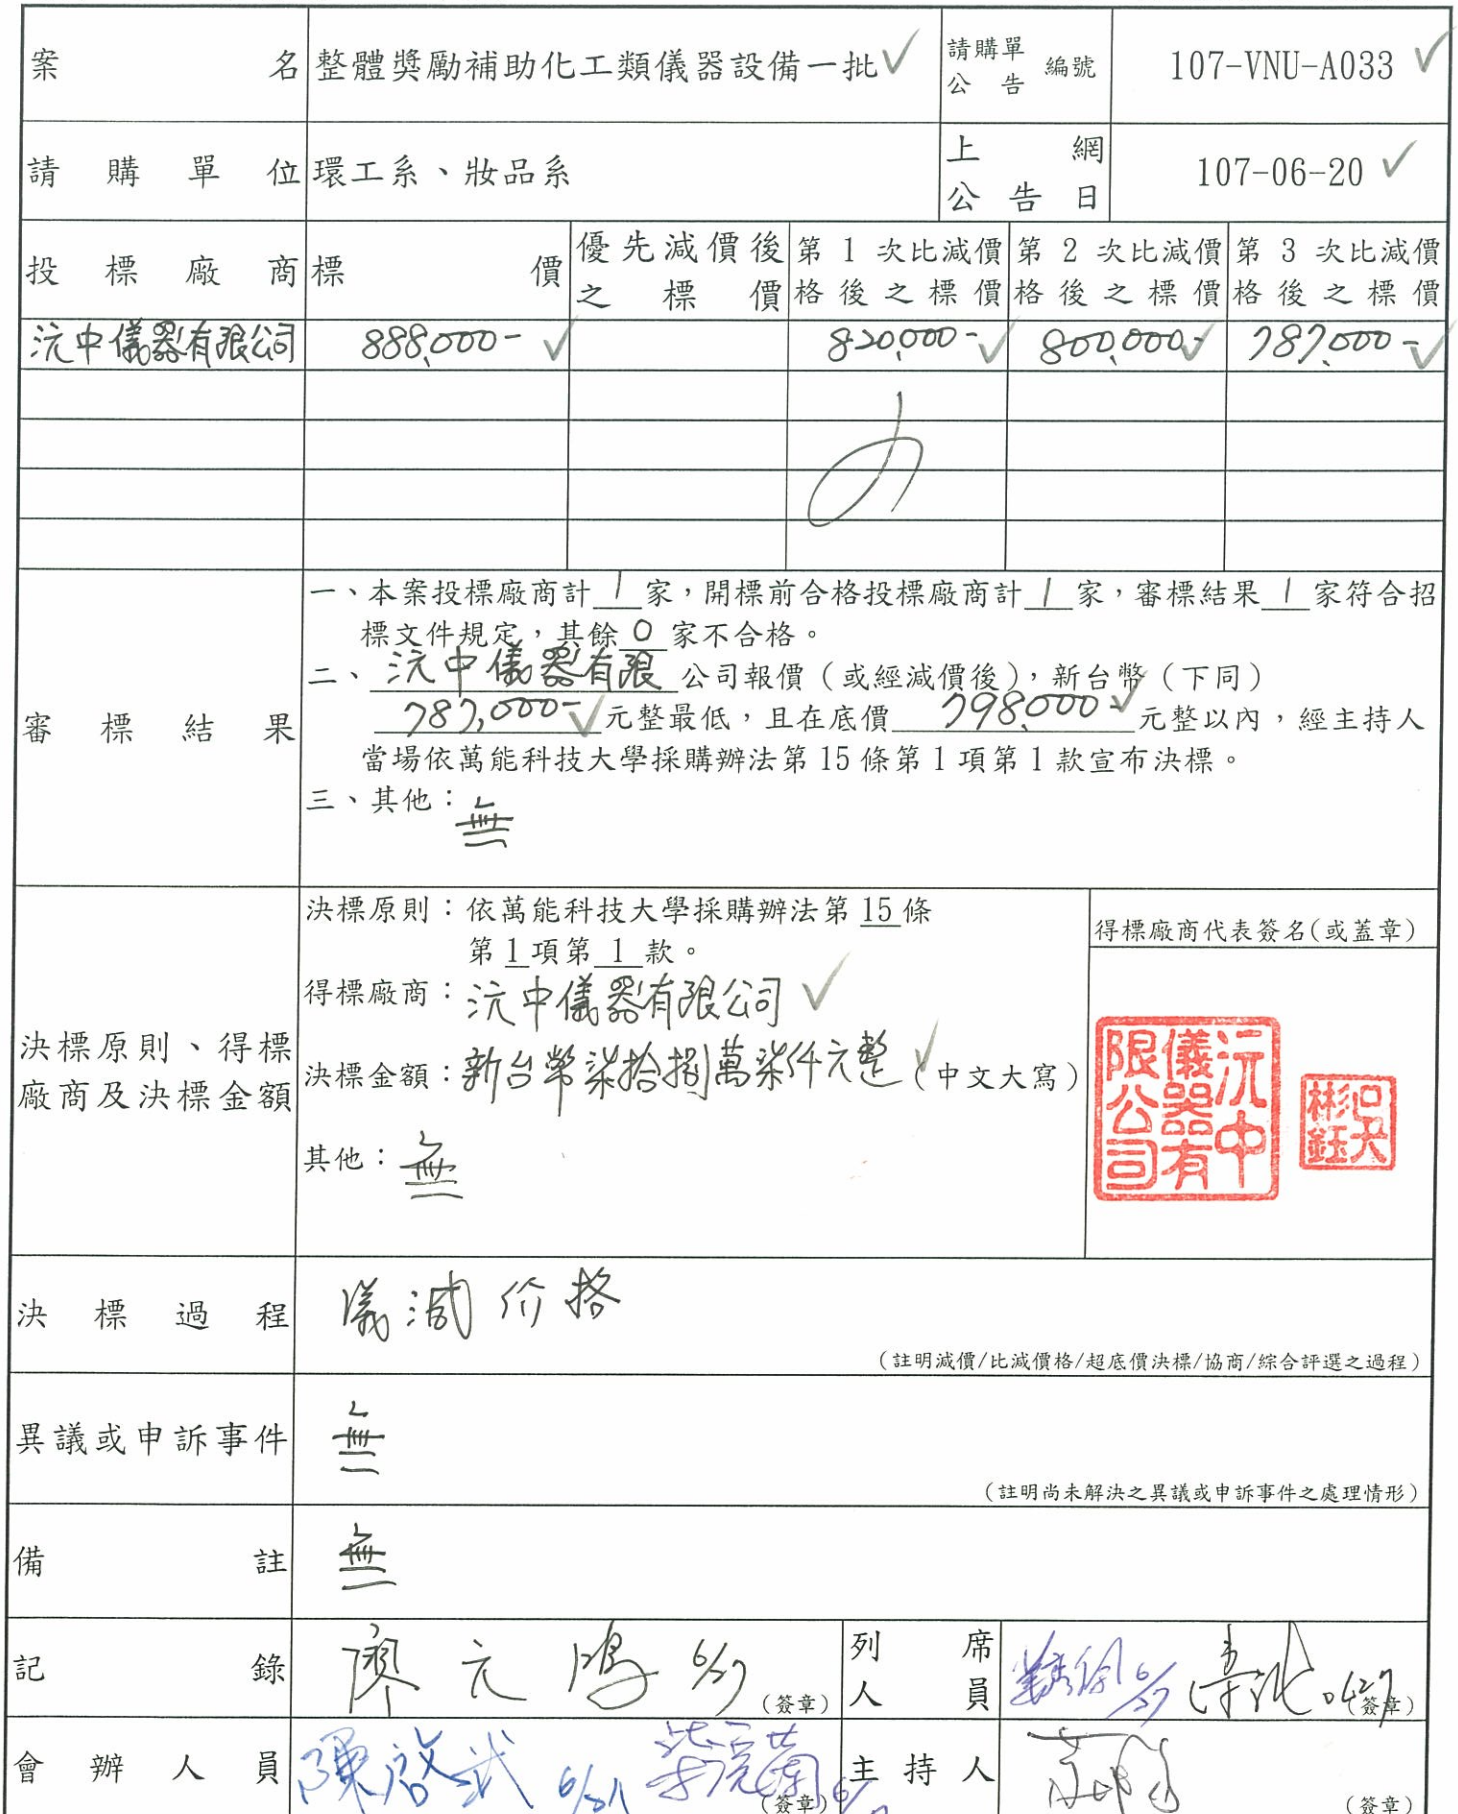 案名 整體獎勵補助化工類儀器設備一批 請購單公告編號 107-VNU-A033
請購單位 環工系、妝品系 上網公告日 107-06-20
投標廠商 標價 優先減價後之標價 第1次比減價格後之標價 第2次比減價格後之標價 第3次比減價格後之標價
沅中儀器有限公司 888,000- 820,000- 800,000- 787,000-
審標結果
一、本案投標廠商計 1 家,開標前合格投標廠商計 1 家,審標結果 1 家符合招
標文件規定,其餘 0 家不合格。
二、沅中儀器有限公司報價(或經減價後),新台幣(下同)
787,000- 元整最低,且在底價 798,000- 元整以內,經主持人
當場依萬能科技大學採購辦法第15條第1項第1款宣布決標。
三、其他:無
決標原則、得標
廠商及決標金額
決標原則:依萬能科技大學採購辦法第 15 條
第 1 項第 1 款。
得標廠商:沅中儀器有限公司
決標金額:新台幣柒拾捌萬柒仟元整(中文大寫)
其他:無
得標廠商代表簽名(或蓋章)
沅中儀器有限公司
吳彬鈺
決標過程 議減价格
(註明減價/比減價格/超底價決標/協商/綜合評選之過程)
異議或申訴事件 無
(註明尚未解決之異議或申訴事件之處理情形)
備註 無
記錄 廖元鴻 6/27 (簽章) 列席人員 6/27 0627 (簽章)
會辦人員 陳啟武 (簽章) 主持人 (簽章)